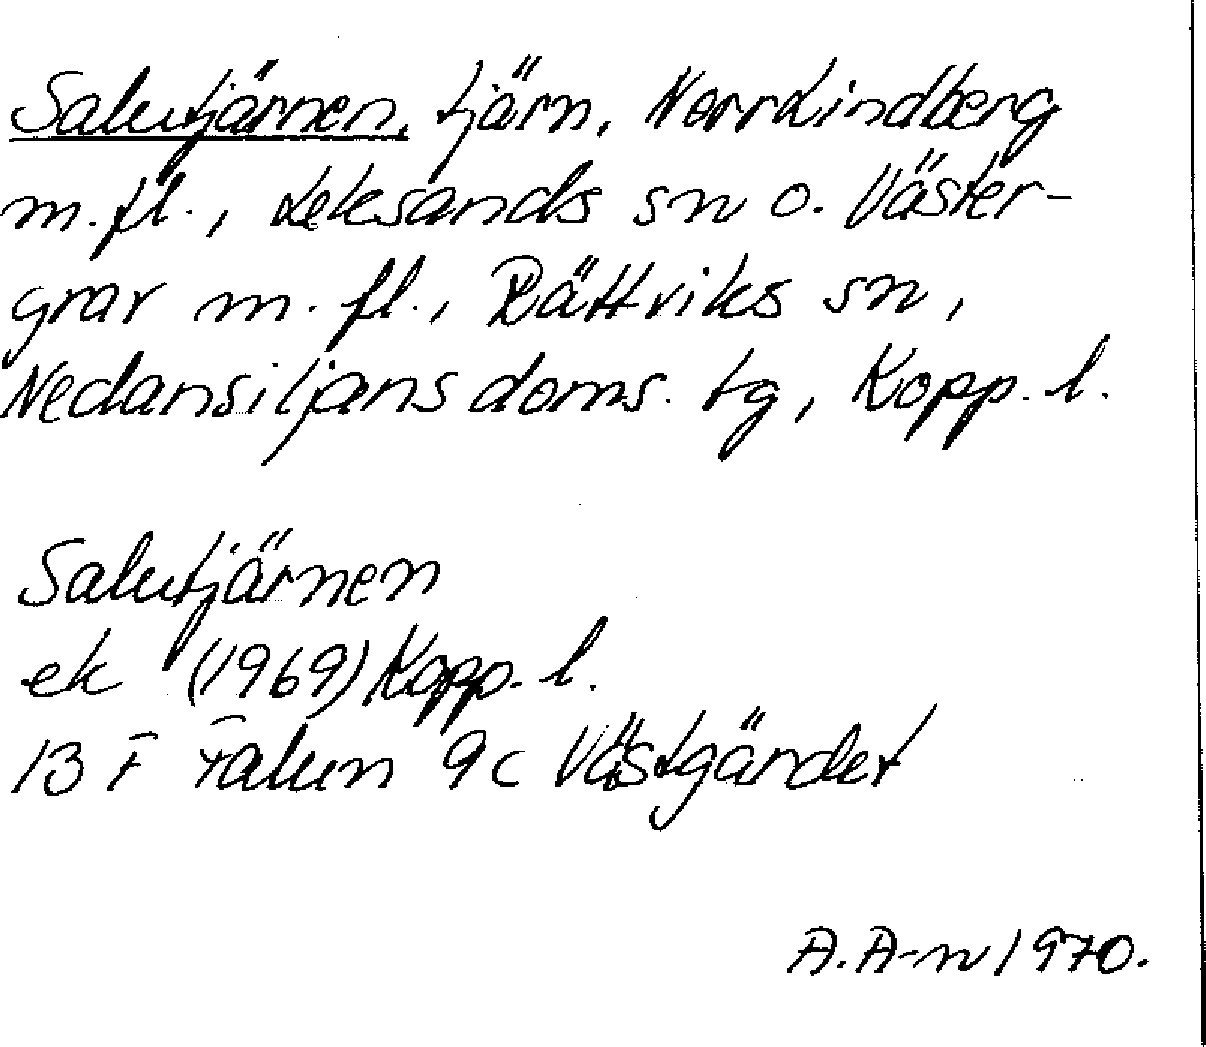 Salutjärnen, tjärn, Norr Lindberg
m.fl., Leksands sn o. Väster-
grar m.fl., Rättviks sn,
Nedansiljans doms. tg, Kopp. l.
Salutjärnen
ek (1969) Kopp. l.
13 F Falun 9c Västgärdet
A.A-n 1970.